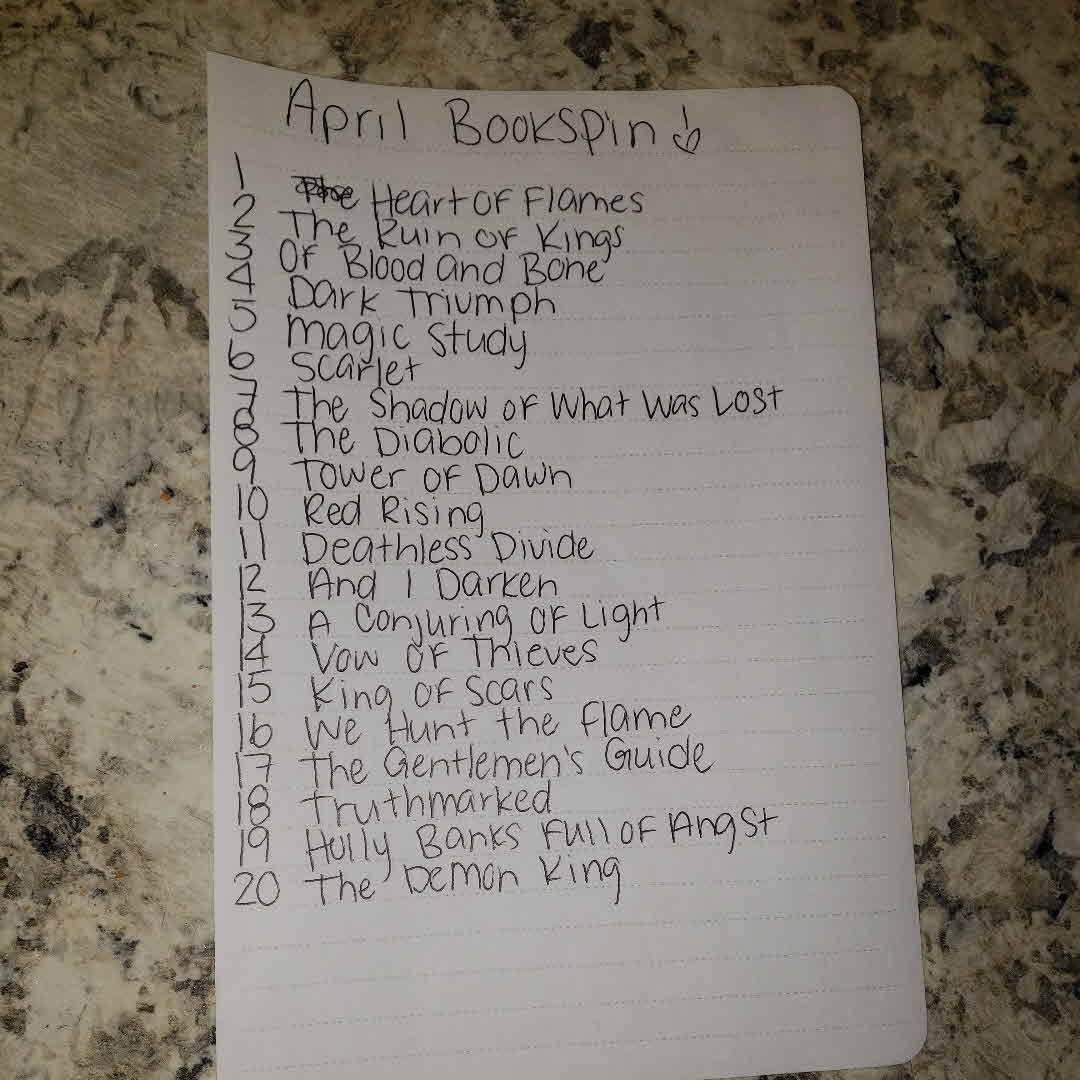 April Bookspin
1 Heart of Flames
2 The Ruin of Kings
3 Of Blood and Bone
4 Dark Triumph
5 Magic Study
6 Scarlet
7 The Shadow of What Was Lost
8 The Diabolic
9 Tower of Dawn
10 Red Rising
11 Deathless Divide
12 And I Darken
13 A Conjuring of Light
14 Vow of Thieves
15 King of Scars
16 We Hunt the Flame
17 The Gentlemen's Guide
18 Truthmarked
19 Holly Banks Full of Angst
20 The Demon King